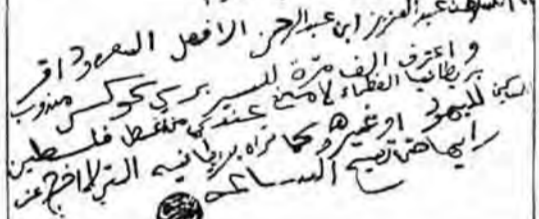 عبد العزيز ابن عبد الرحمن الافصل السعود اقر
و اعترف الف مرة للسير برسي كوكس مندوب
بريطانيا العظماء لا مانع عندي من فلسطين
للمساكين لليهود او غيرهم كما تراه بريطانيا التي لا اخرج عن
رايها حتى تصيح الساعه